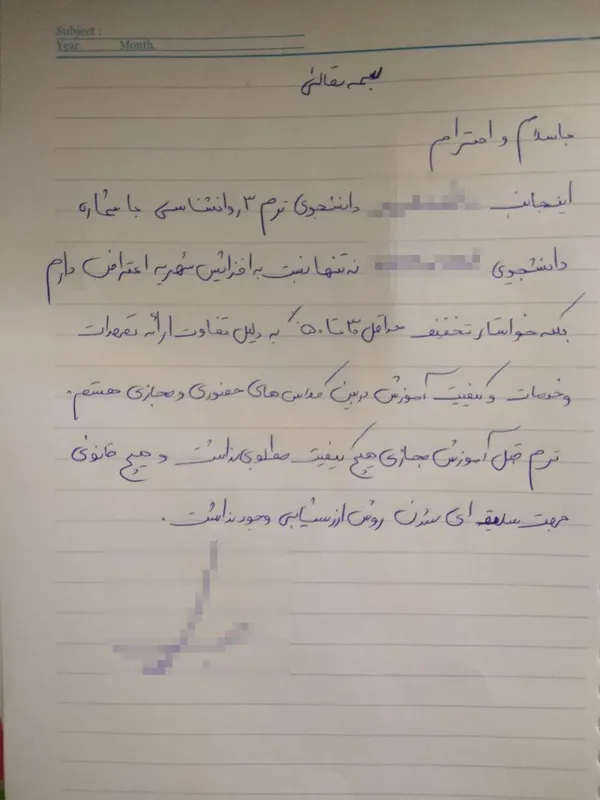 Subject :
Year Month
بسمه تعالی
باسلام و احترام
اینجانب دانشجوی ترم ۳ روانشناسی با شماره
دانشجویی نه تنها نسبت به افزایش شهریه اعتراض دارم
بلکه خواستار تخفیف حداقل ۳۰ تا ۵۰٪ به دلیل تفاوت ارائه تعهدات
وخدمات و کیفیت آموزش دربین کلاس های حضوری و مجازی هستم.
ترم قبل آموزش مجازی هیچ کیفیت مطلوبی نداشت و هیچ قانونی
جهت سلیقه ای نشدن روش ارزشیابی وجود نداشت.